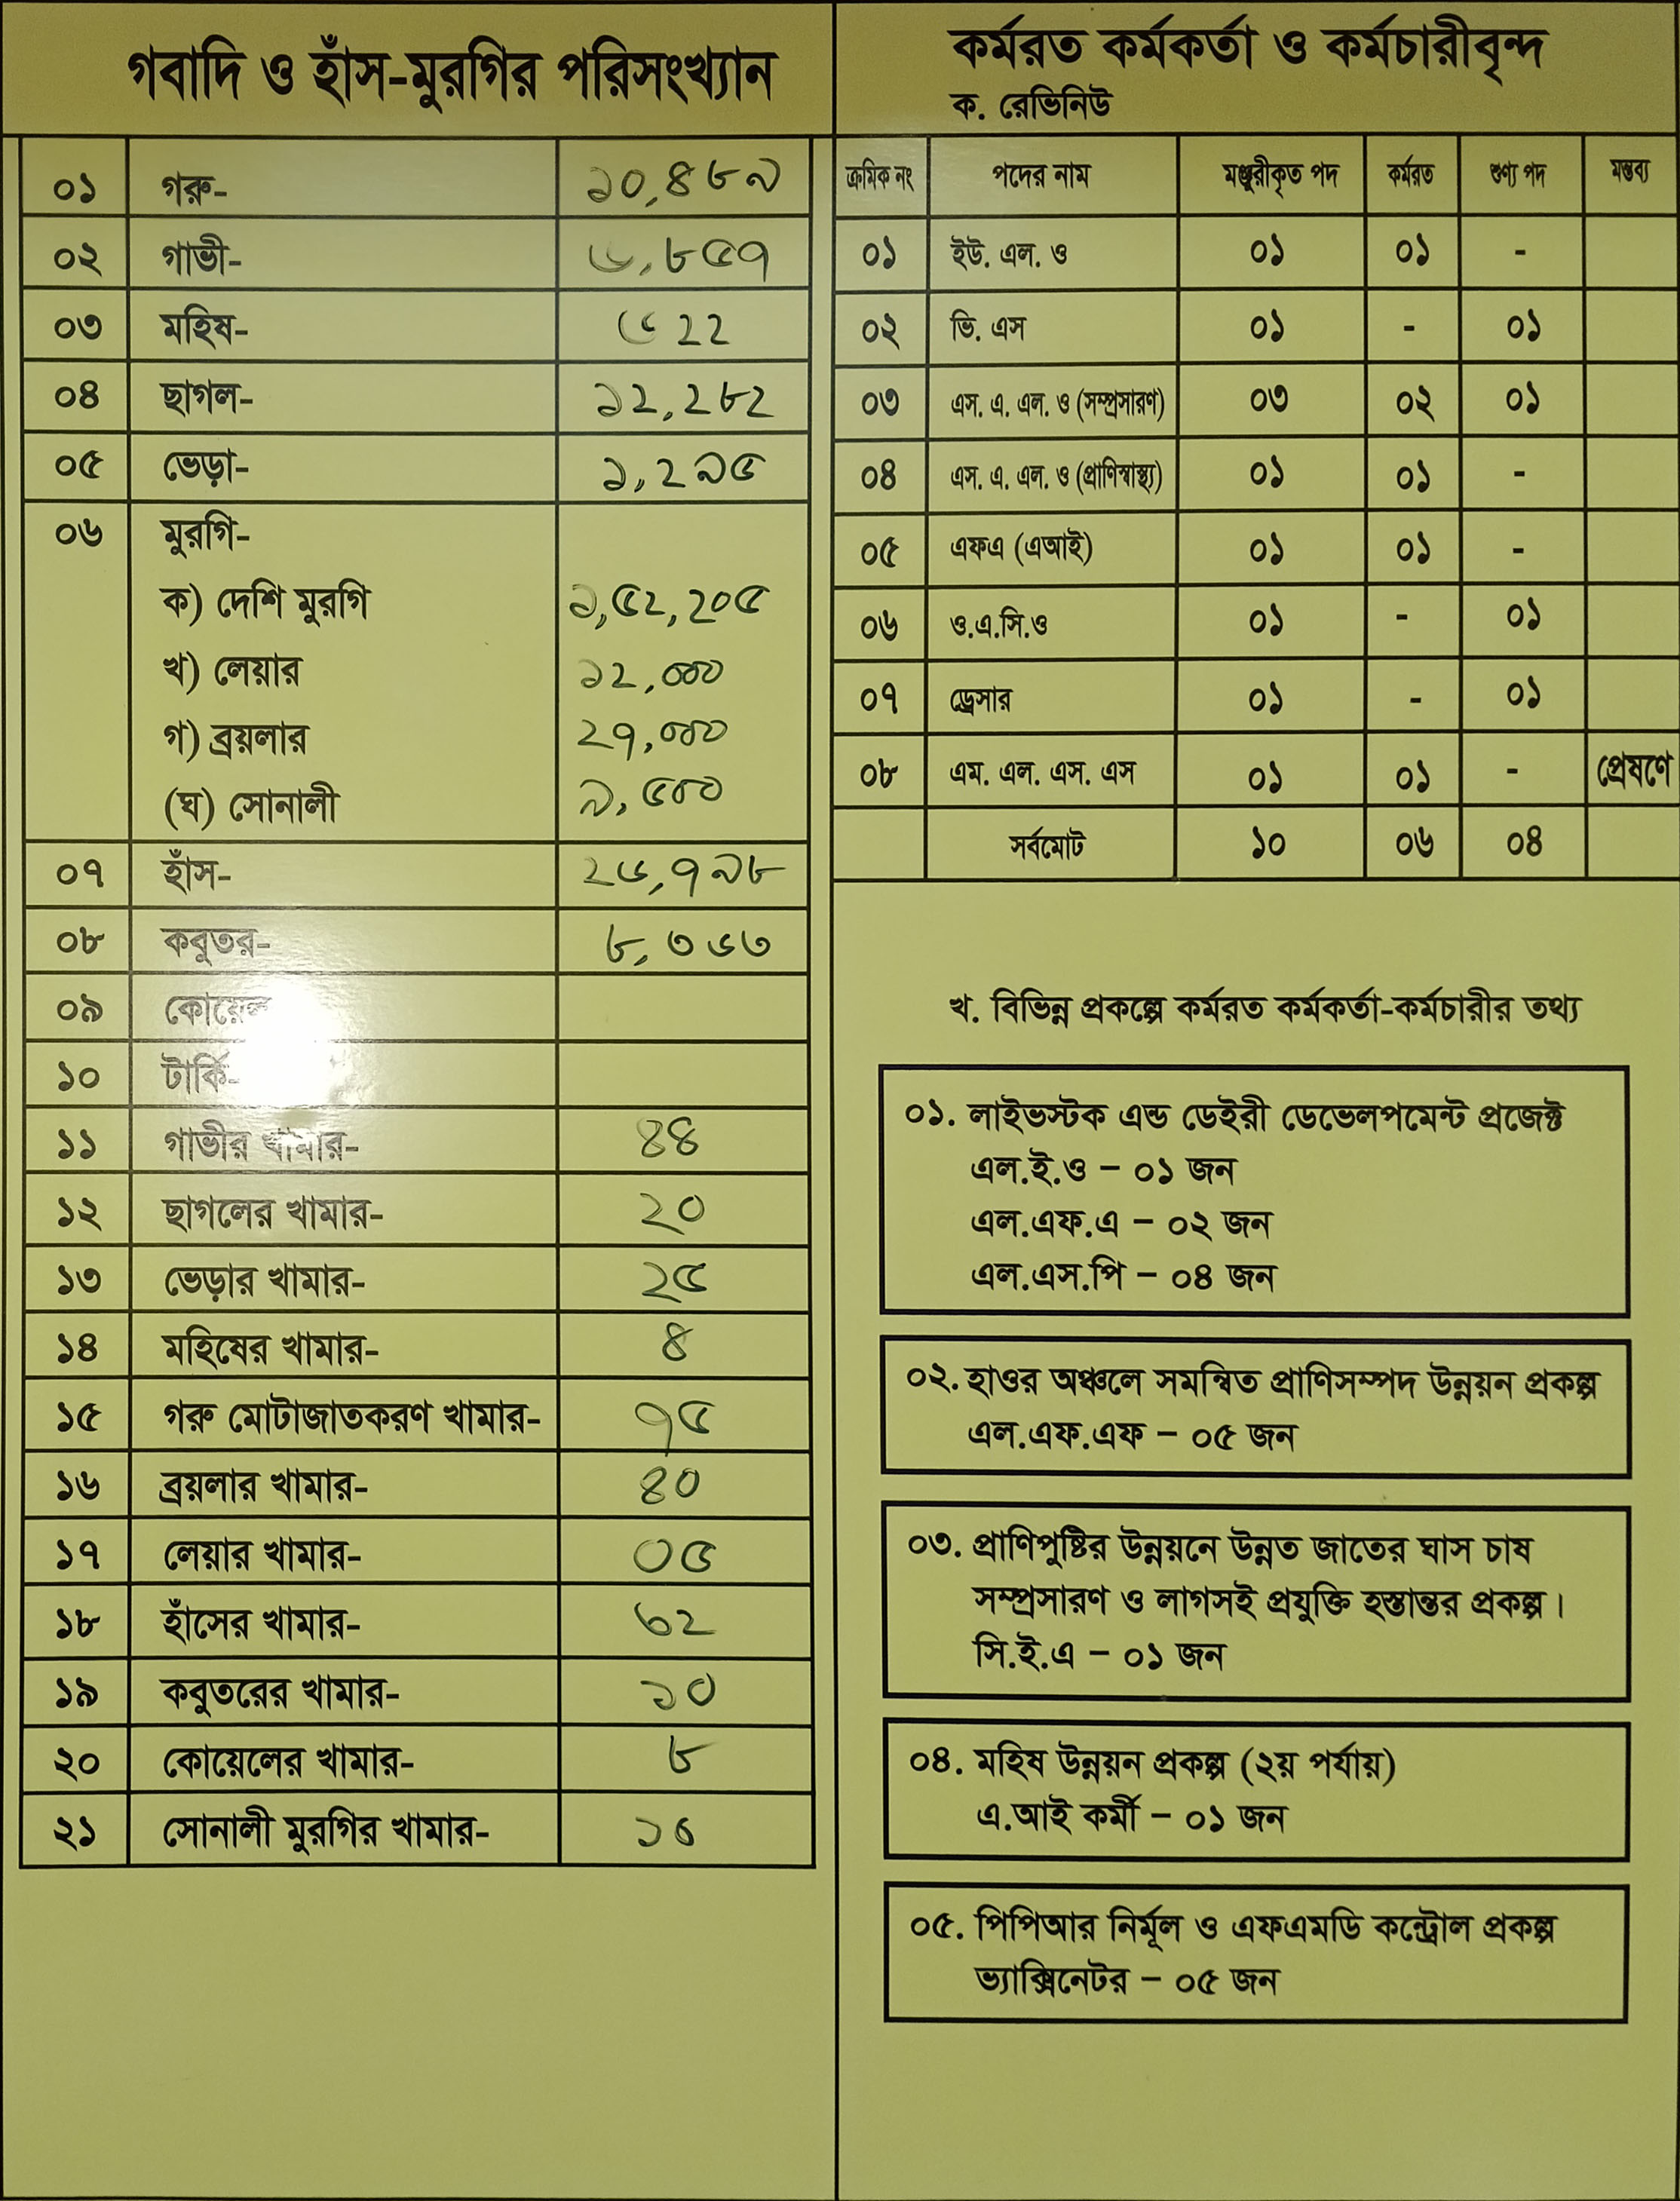 গবাদি ও হাঁস-মুরগির পরিসংখ্যান
০১ গরু- ১০,৪৮৯
০২ গাভী- ৬,৮৫৭
০৩ মহিষ- ৫২২
০৪ ছাগল- ১২,২৮২
০৫ ভেড়া- ১,২৯৫
০৬ মুরগি-
ক) দেশি মুরগি ১,৫২,২০৫
খ) লেয়ার ১২,০০০
গ) ব্রয়লার ২৭,০০০
(ঘ) সোনালী ৯,৫০০
০৭ হাঁস- ২৬,৭৯৮
০৮ কবুতর- ৮,৩৬৩
০৯ কোয়েল
১০ টার্কি-
১১ গাভীর খামার- ৪৪
১২ ছাগলের খামার- ২০
১৩ ভেড়ার খামার- ২৫
১৪ মহিষের খামার- ৪
১৫ গরু মোটাজাতকরণ খামার- ৭৫
১৬ ব্রয়লার খামার- ৪০
১৭ লেয়ার খামার- ০৫
১৮ হাঁসের খামার-
১৯ কবুতরের খামার- ১০
২০ কোয়েলের খামার- ৮
২১ সোনালী মুরগির খামার-
কর্মরত কর্মকর্তা ও কর্মচারীবৃন্দ
ক. রেভিনিউ
ক্রমিক নং পদের নাম মঞ্জুরীকৃত পদ কর্মরত শুণ্য পদ মন্তব্য
০১ ইউ. এল. ও ০১ ০১ -
০২ ভি. এস ০১ - ০১
০৩ এস. এ. এল. ও (সম্প্রসারণ) ০৩ ০২ ০১
০৪ এস. এ. এল. ও (প্রাণিস্বাস্থ্য) ০১ ০১ -
০৫ এফএ (এআই) ০১ ০১ -
০৬ ও.এ.সি.ও ০১ - ০১
০৭ ড্রেসার ০১ - ০১
০৮ এম. এল. এস. এস ০১ ০১ - প্রেষণে
সর্বমোট ১০ ০৬ ০৪
খ. বিভিন্ন প্রকল্পে কর্মরত কর্মকর্তা-কর্মচারীর তথ্য
০১. লাইভস্টক এন্ড ডেইরী ডেভেলপমেন্ট প্রজেক্ট
এল.ই.ও – ০১ জন
এল.এফ.এ – ০২ জন
এল.এস.পি – ০৪ জন
০২. হাওর অঞ্চলে সমন্বিত প্রাণিসম্পদ উন্নয়ন প্রকল্প
এল.এফ.এফ – ০৫ জন
০৩. প্রাণিপুষ্টির উন্নয়নে উন্নত জাতের ঘাস চাষ
সম্প্রসারণ ও লাগসই প্রযুক্তি হস্তান্তর প্রকল্প।
সি.ই.এ – ০১ জন
০৪. মহিষ উন্নয়ন প্রকল্প (২য় পর্যায়)
এ.আই কর্মী – ০১ জন
০৫. পিপিআর নির্মূল ও এফএমডি কন্ট্রোল প্রকল্প
ভ্যাক্সিনেটর – ০৫ জন